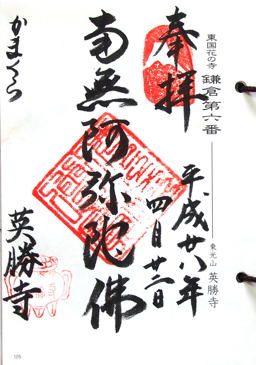 東国花の寺 鎌倉第六番
東光山 英勝寺
奉拝
平成廿八年
四月廿二日
南無阿弥陀佛
かまくら
英勝寺
105